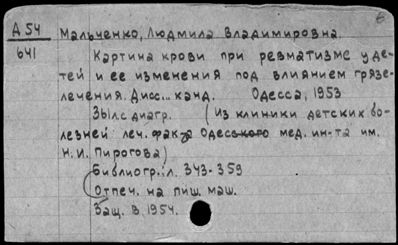 А 54 Мальченко, Людмила Владимировна.
641 Картина крови при ревматизме у де-
тей и ее изменения под влиянием грязе-
лечения. Дисс... канд. Одесса, 1953
3б.л. с диагр. (Из клиники детских бо-
лезней леч. фак-та Одесского мед. ин-та им.
Н.И. Пирогова)
Библиогр.: л. 343-359
Отпеч. на пиш. маш.
Защ. в 1954.